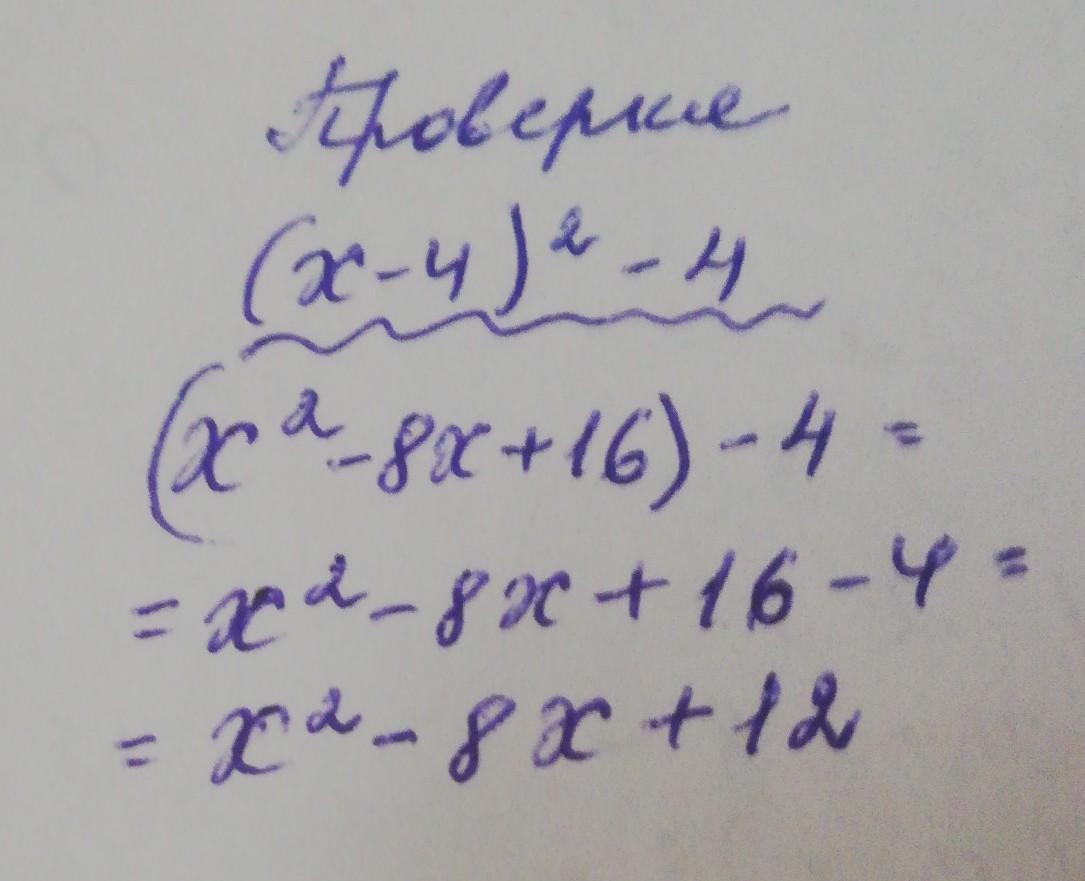 Проверка
(x-4)² - 4
(x² - 8x + 16) - 4 =
= x² - 8x + 16 - 4 =
= x² - 8x + 12